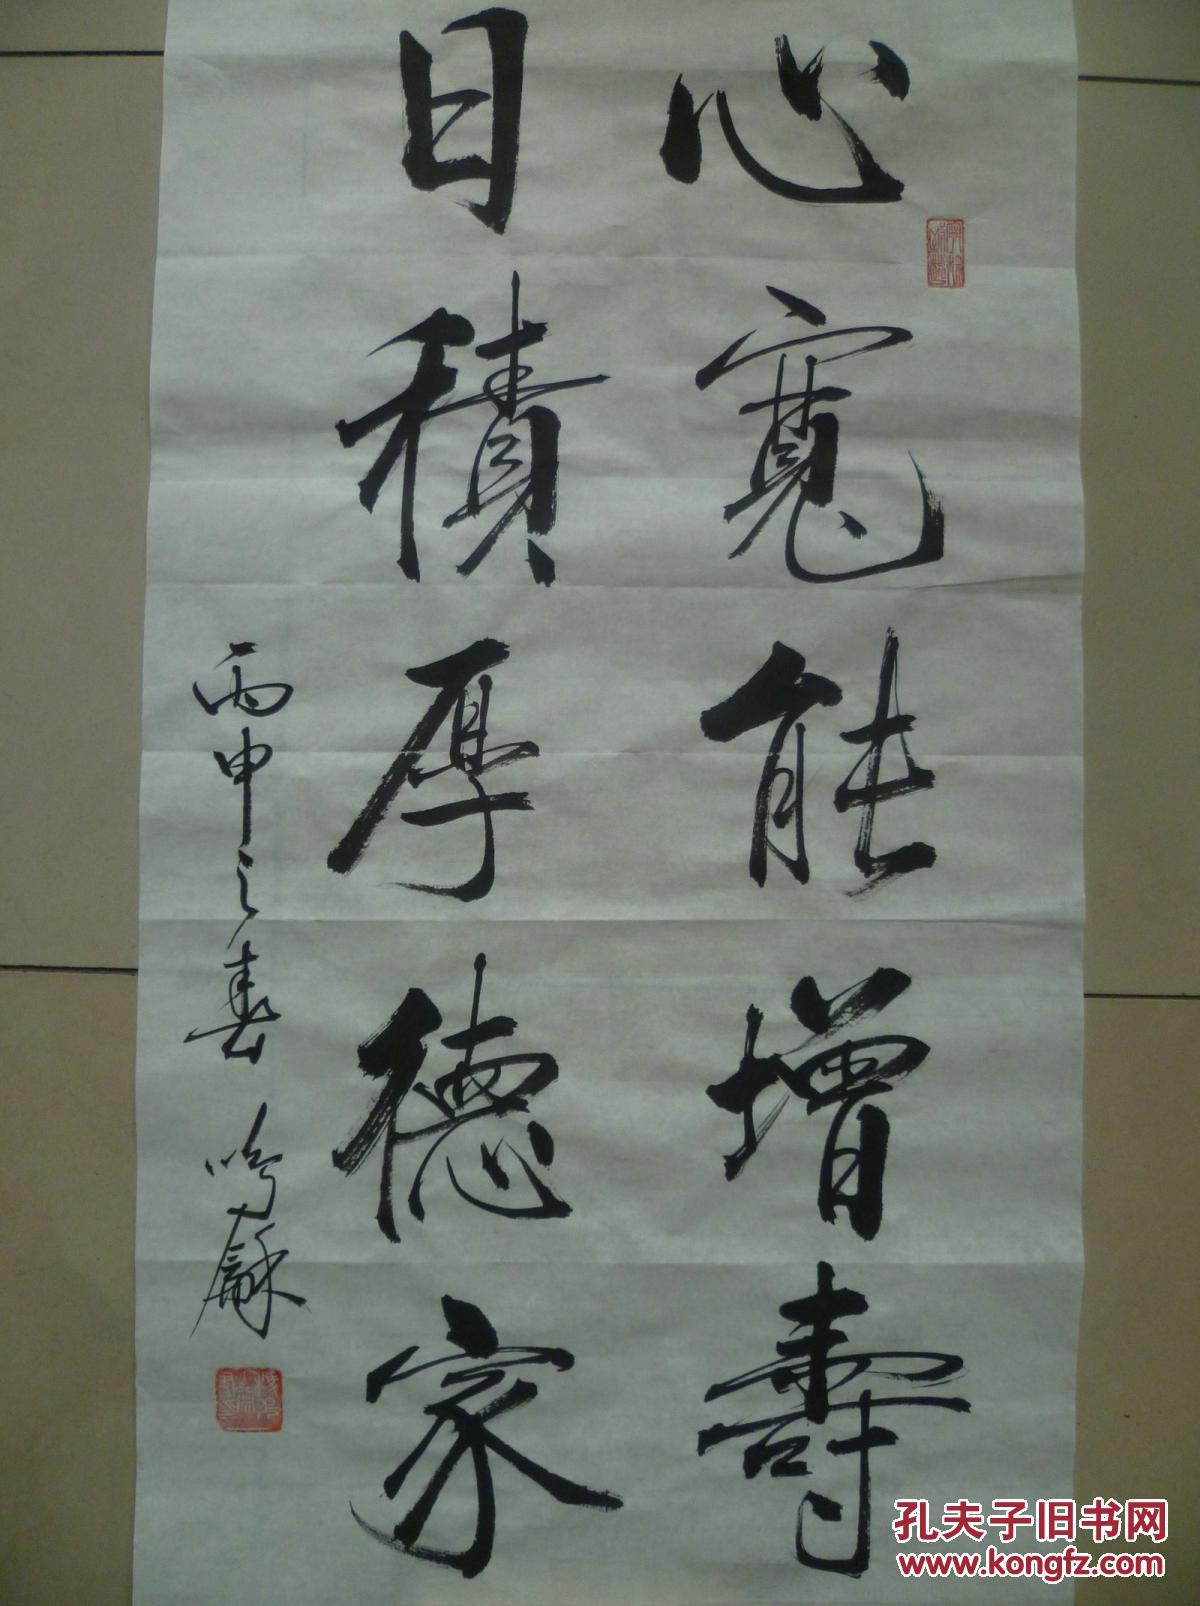 心寬能增壽
日積厚德家
丙申之春 鸣龢
孔夫子旧书网
www.kongfz.com